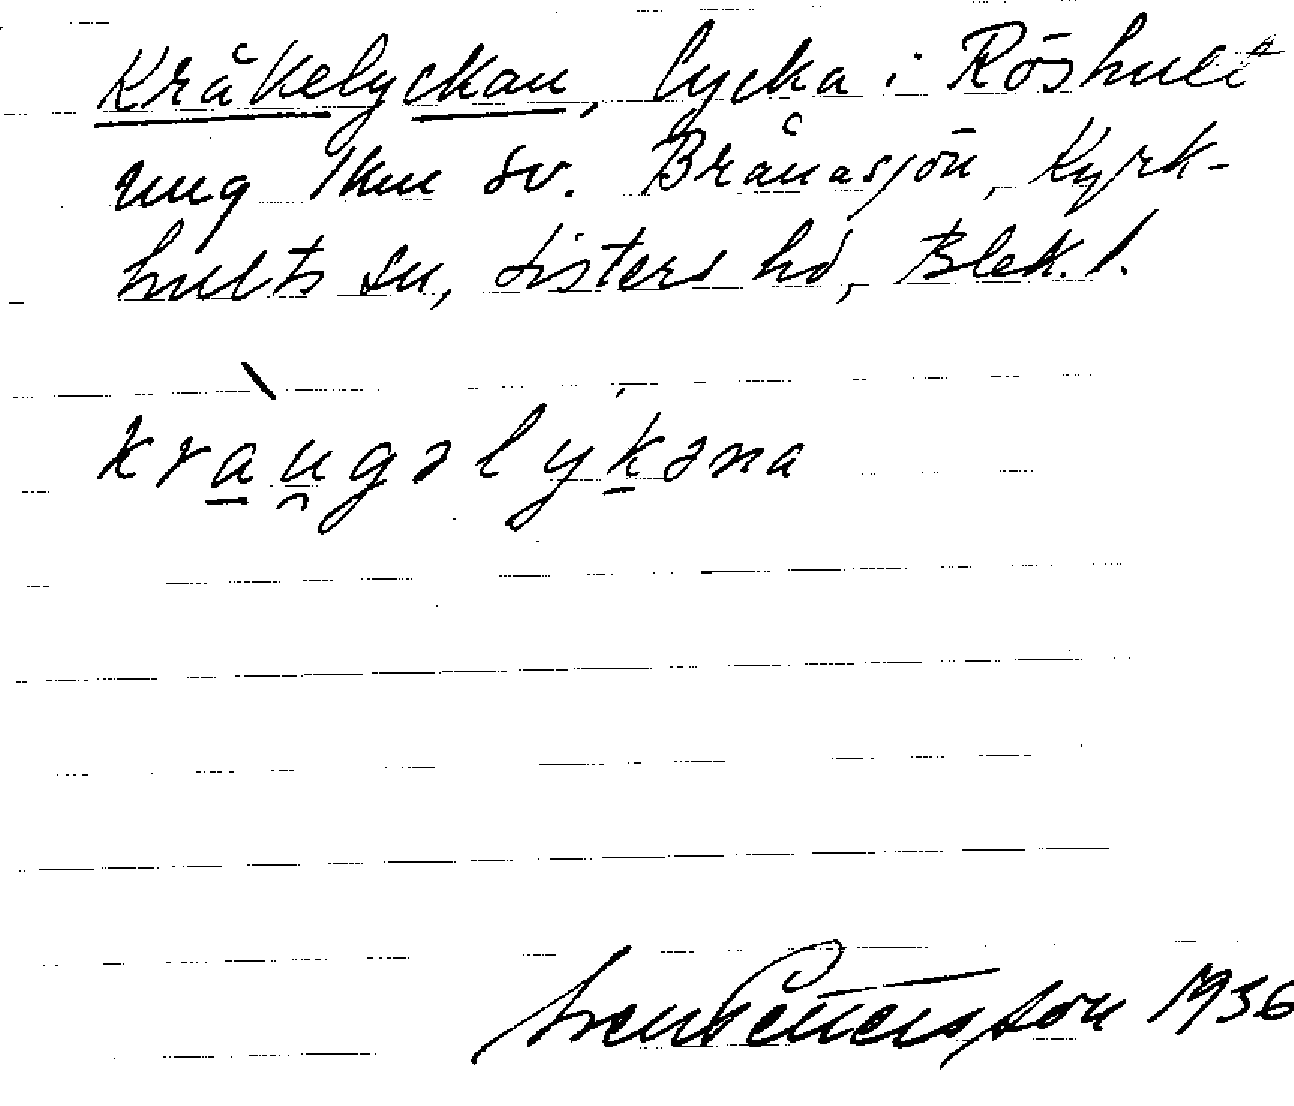 Kråkelyckan, lycka i Röshult
ung 1 km sv. Brånasjön, Kyrk-
hults sn, Listers hd, Blek. l.
kràu̯gəlýkəna
Sven Pettersson 1936